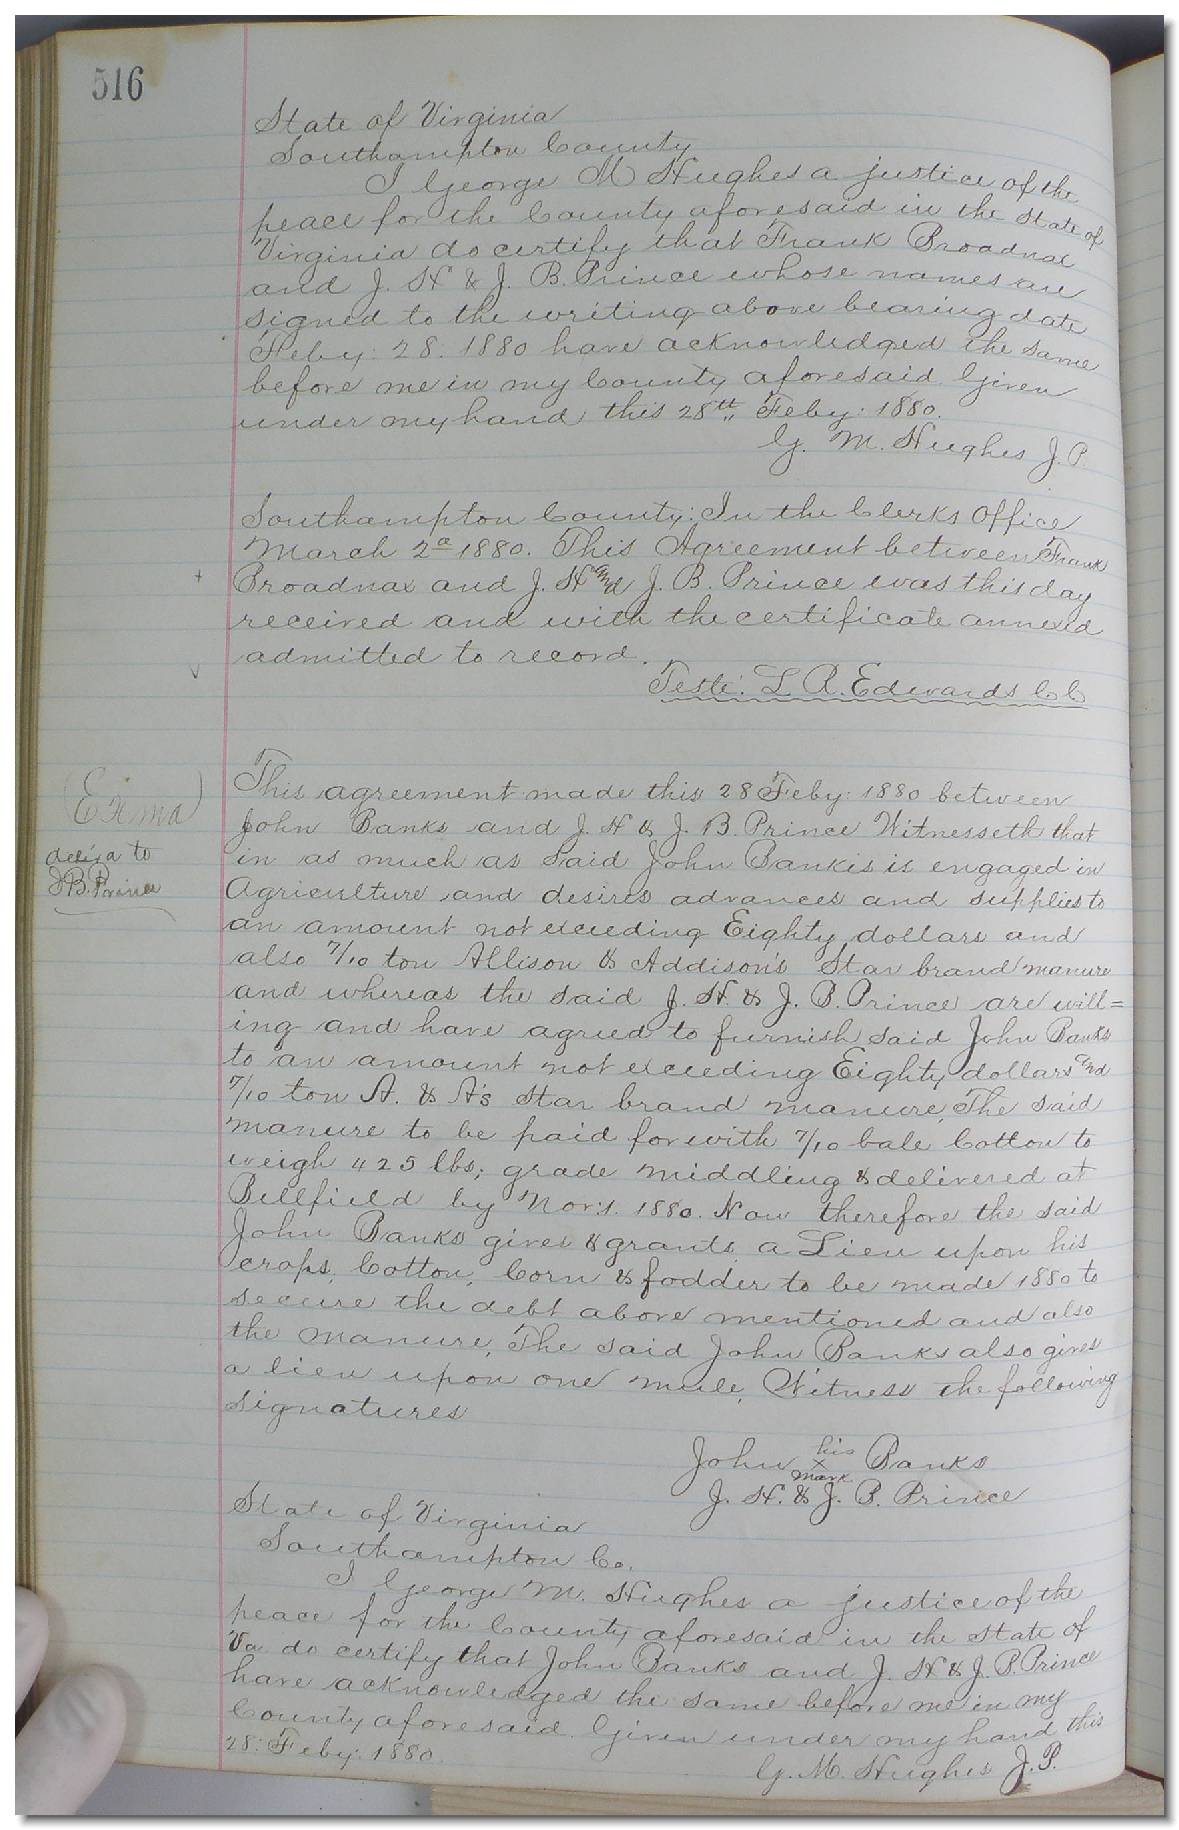 516
State of Virginia
Southampton County
I George M Hughes a justice of the
peace for the County aforesaid in the State of
Virginia do certify that Frank Broadnax
and J. H & J. B. Prince whose names are
signed to the writing above bearing date
Feby: 28. 1880 have acknowledged the same
before me in my County aforesaid. Given
under my hand this 28th Feby: 1880.
G. M. Hughes J. P.
Southampton County: In the Clerks Office
March 2d 1880. This Agreement between Frank
Broadnax and J. H and J. B. Prince was this day
received and with the certificate annexed
admitted to record.
Teste: L. R. Edwards CC
This agreement made this 28 Feby: 1880 between
John Banks and J. H & J. B. Prince Witnesseth that
in as much as said John Banks is engaged in
Agriculture and desires advances and supplies to
an amount not exceeding Eighty dollars and
also 7/10 ton Allison & Addison's Star brand manure
and whereas the said J. H. & J. B. Prince are will=
ing and have agreed to furnish said John Banks
to an amount not exceeding Eighty dollars and
7/10 ton A. & A's Star brand manure, The said
manure to be paid for with 7/10 bale Cotton to
weigh 425 lbs; grade middling & delivered at
Bellfield by Nov: 1. 1880. Now therefore the said
John Banks gives & grants a Lien upon his
crops, Cotton, Corn & fodder to be made 1880 to
secure the debt above mentioned and also
the manure, The said John Banks also gives
a lien upon one mule, Witness the following
signatures
John his Banks
x
mark
J. H. & J. B. Prince
State of Virginia
Southampton Co.
I George M. Hughes a justice of the
peace for the County aforesaid in the State of
Va do certify that John Banks and J. H & J. B. Prince
have acknowledged the same before me in my
County aforesaid. Given under my hand this
28: Feby: 1880.
G. M. Hughes J. P.
(Exmd)
deliv'd to
J B. Prince